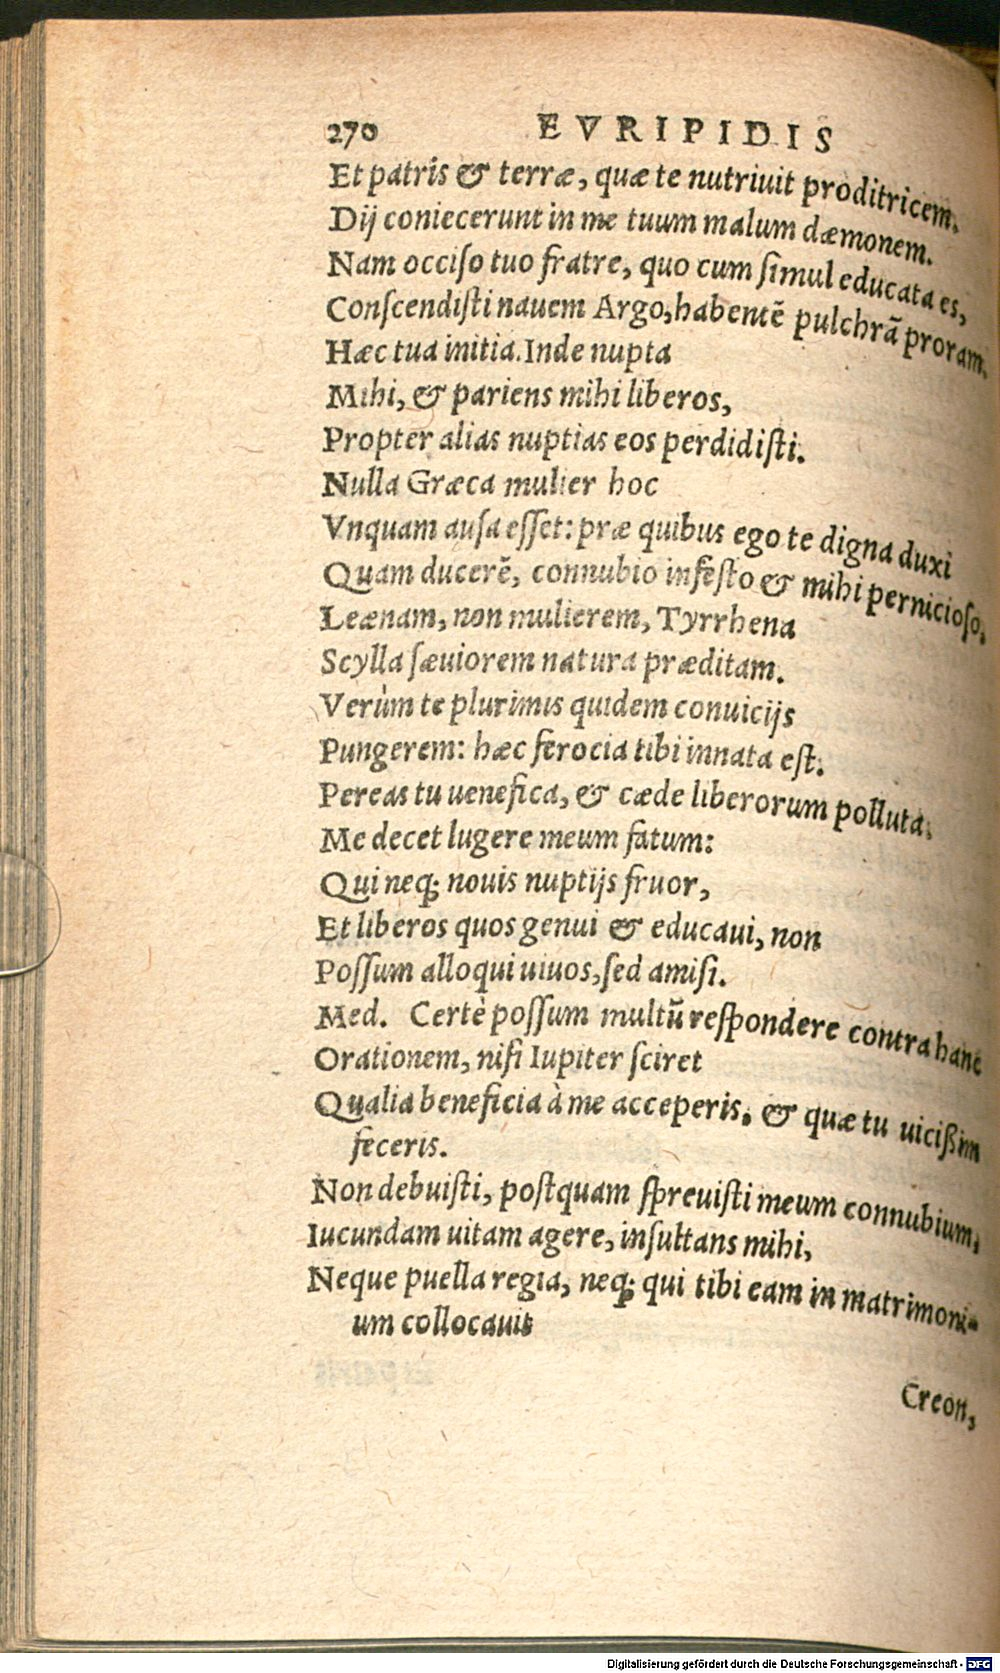 270 EVRIPIDIS
Et patris & terræ, quæ te nutriuit proditricem.
Dij coniecerunt in me tuum malum dæmonem.
Nam occiſo tuo fratre, quo cum ſimul educata es,
Conſcendiſti nauem Argo, habentẽ pulchrã proram.
Hæc tua initia. Inde nupta
Mihi, & pariens mihi liberos,
Propter alias nuptias eos perdidiſti.
Nulla Græca mulier hoc
Vnquam auſa eſſet: præ quibus ego te digna duxi
Quam ducerẽ, connubio infeſto & mihi pernicioſo,
Leænam, non mulierem, Tyrrhena
Scylla ſæuiorem natura præditam.
Verùm te plurimis quidem conuicijs
Pungerem: hæc ferocia tibi innata eſt.
Pereas tu uenefica, & cæde liberorum polluta.
Me decet lugere meum fatum:
Qui neq; nouis nuptijs fruor,
Et liberos quos genui & educaui, non
Poſſum alloqui uiuos, ſed amiſi.
Med. Certè poſſum multũ reſpondere contra hanc
Orationem, niſi Iupiter ſciret
Qualia beneficia à me acceperis, & quæ tu uicißim
feceris.
Non debuiſti, poſtquam ſpreuiſti meum connubium,
Iucundam uitam agere, inſultans mihi,
Neque puella regia, neq; qui tibi eam in matrimoni-
um collocauit
Creon,
Digitalisierung gefördert durch die Deutsche Forschungsgemeinschaft - DFG